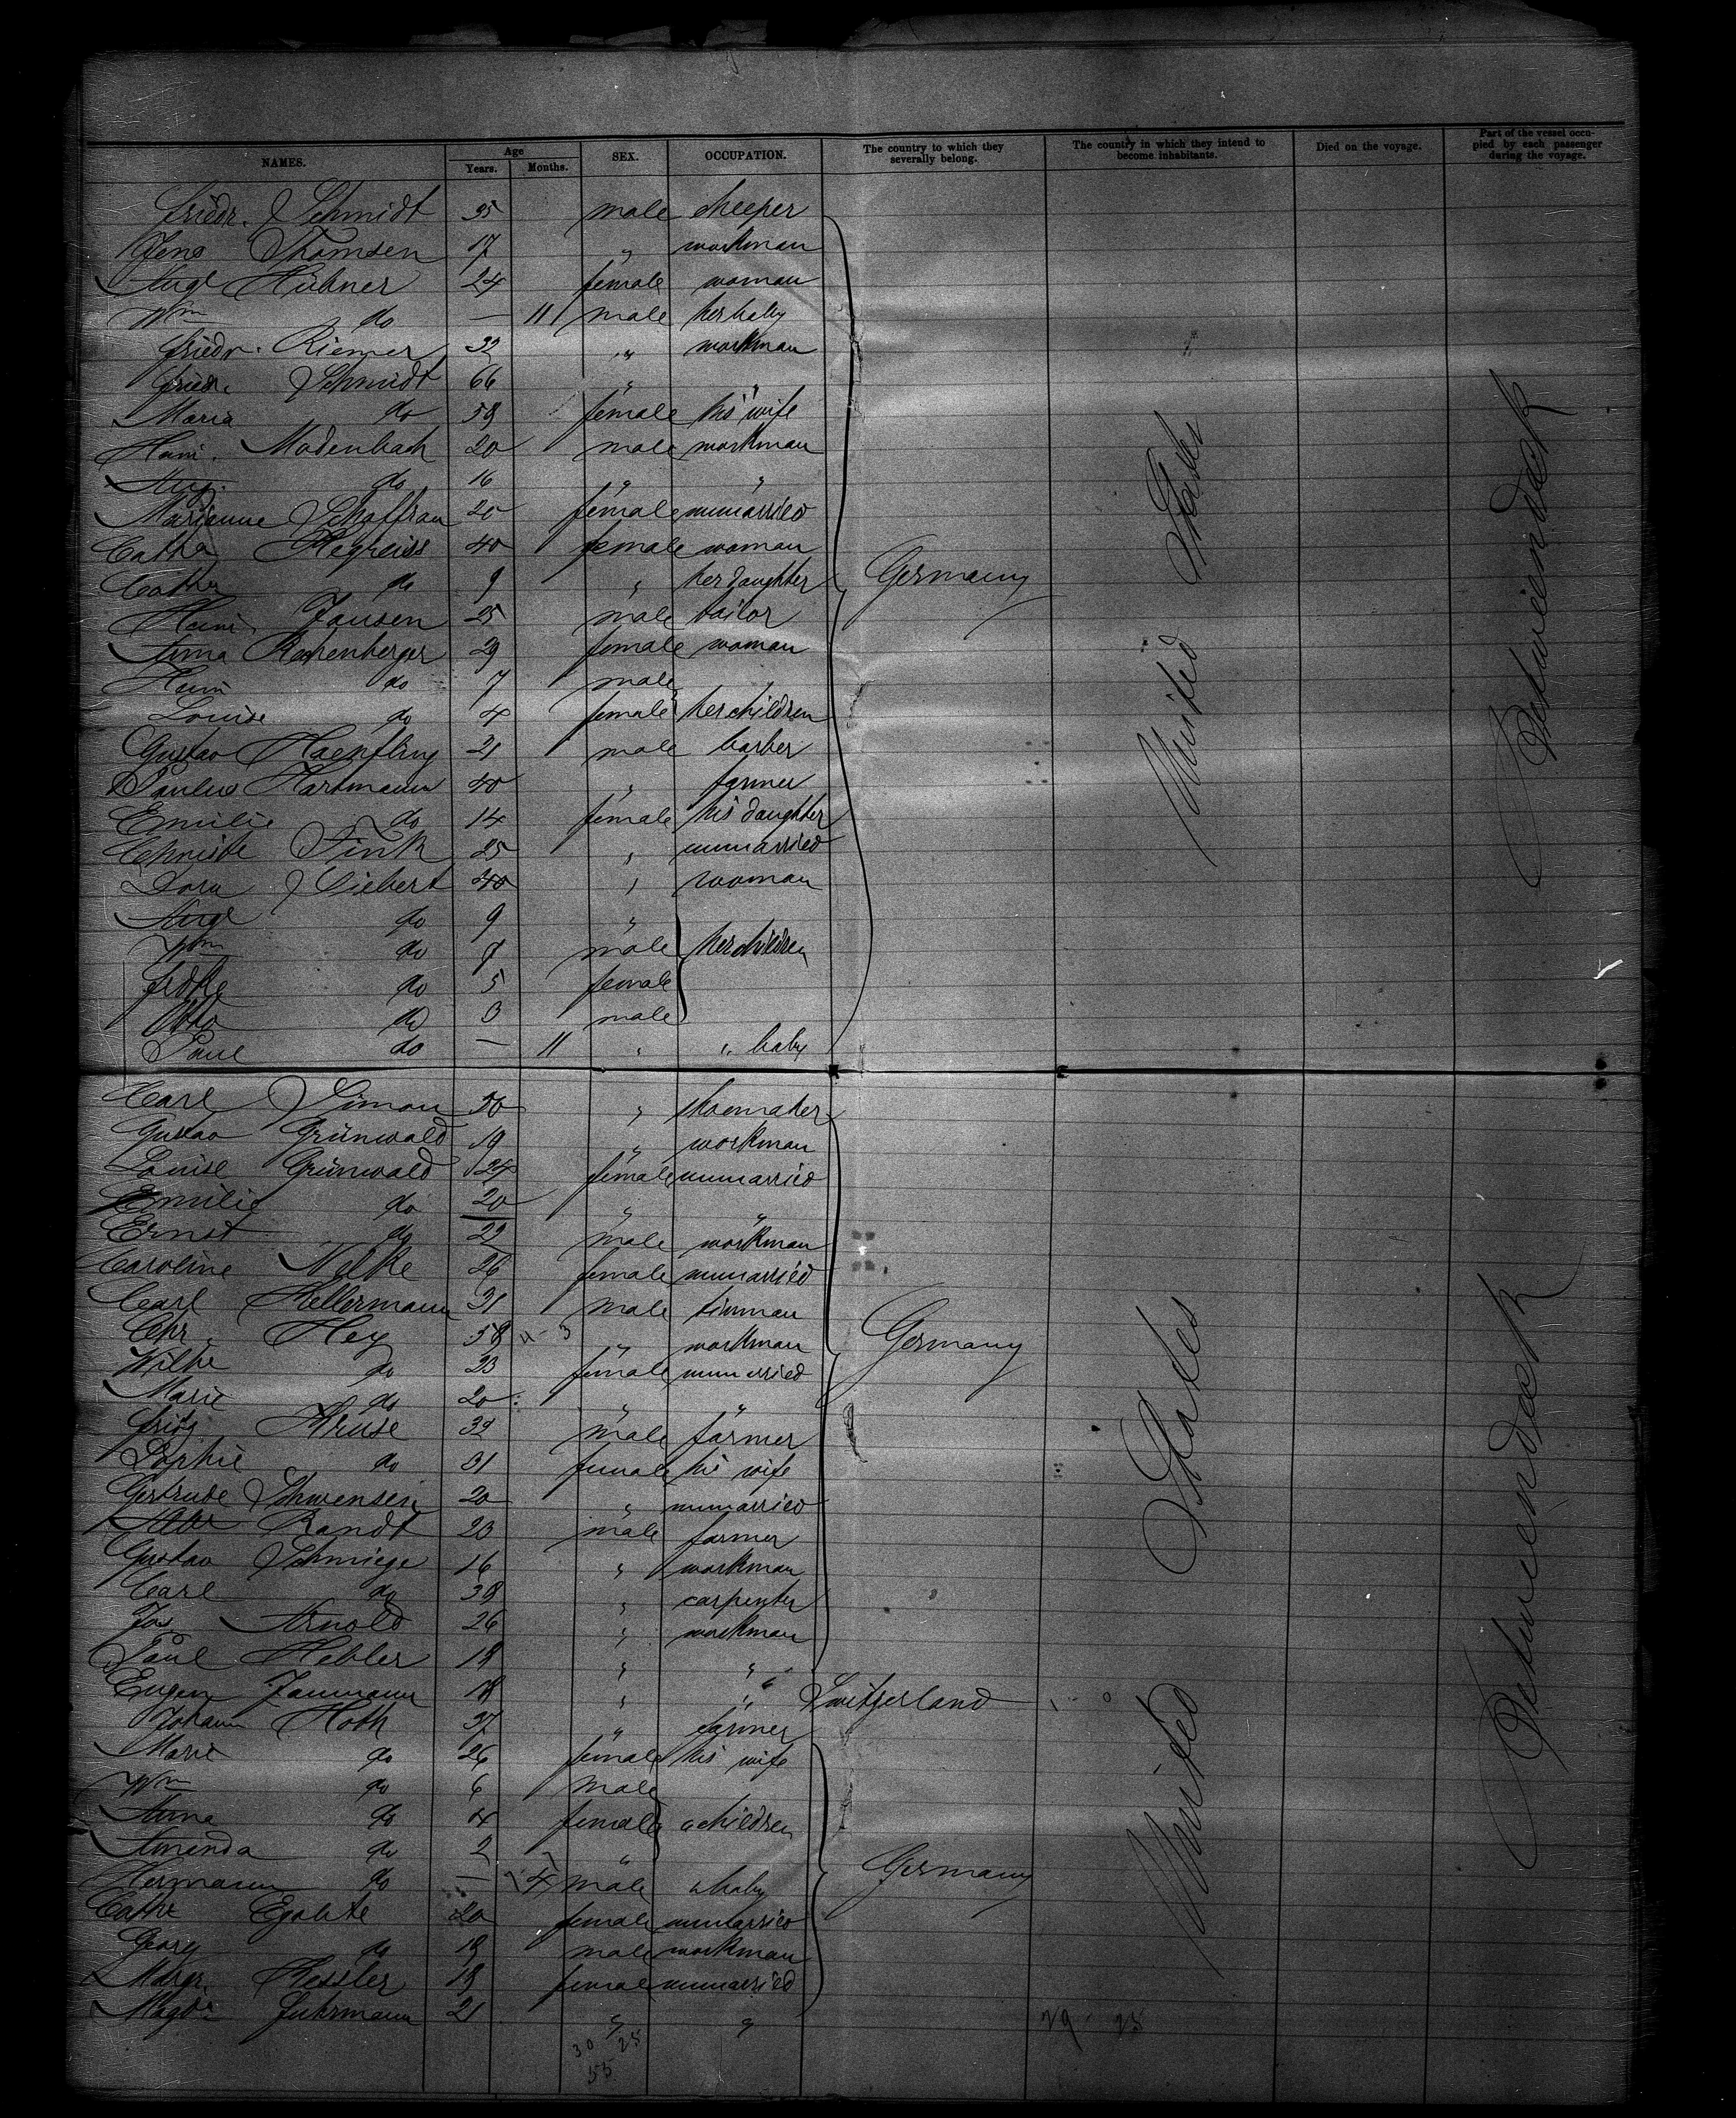 NAMES. Age Years. Months. SEX. OCCUPATION. The country to which they severally belong. The country in which they intend to become inhabitants. Died on the voyage. Part of the vessel occupied by each passenger during the voyage.
Friedr. Schmidt 35 male
Jens Thomsen 17 " workman
Aug. Hübner 24 female woman
Wm do — 11 male her baby
Friedr. Riemer 32 " workman
Friedr. Schmidt 66 " "
Maria do 58 female his wife
Heinr. Modenbach 20 male workman
Aug. do 16 " "
Marjanne Schaffran 20 female unmarried
Catha 40 female woman
Catha do 9 " her daughter
Germany
Heinr. Jansen 25 male tailor
Anna 29 female woman
Heinr. do 7 male
Louise do 4 female her children
Gustav Haenfling 21 male barber
Paulus Hartmann 40 " farmer
Emilie do 14 female his daughter
Christe Fink 25 " unmarried
Dora Siebert 40 " woman
Augl do 9 "
Wm do 7 male her children
Fridke do 5 female
Otto do 3 male
Paul do — 11 " " baby
United States
Betweendeck
Carl Simon 30 " shoemaker
Gustav Grünwald 19 " workman
Louise Grünwald 24 female unmarried
Emilie do 20 " "
Ernst do 22 male workman
Caroline Nelke 26 female unmarried
Carl Kellermann 31 male tinman
Chr. Hey 58 " workman
Germany
Wilhe do 23 female unmarried
Marie do 20 " "
Fritz Kruse 32 male farmer
Sophie do 31 female his wife
Gertrude Schwensen 20 " unmarried
Randt 23 male farmer
Gustav Schmiege 16 " workman
Carl do 38 " carpenter
Jos. Arnold 26 " workman
Paul Hebler 18 " "
Eugen Jaumann 18 " " Switzerland
Johann Hoth 37 " farmer
Marie do 26 female his wife
Wm do 6 male
Anna do 4 female " children
Amanda do 2 "
Hermann do — 4 male " baby
Germany
Cathe 20 female unmarried
Georg do 18 male workman
Margr. Kessler 18 female unmarried
Magda Fuhrmann 21 " "
United States
Betweendeck
30 25
55